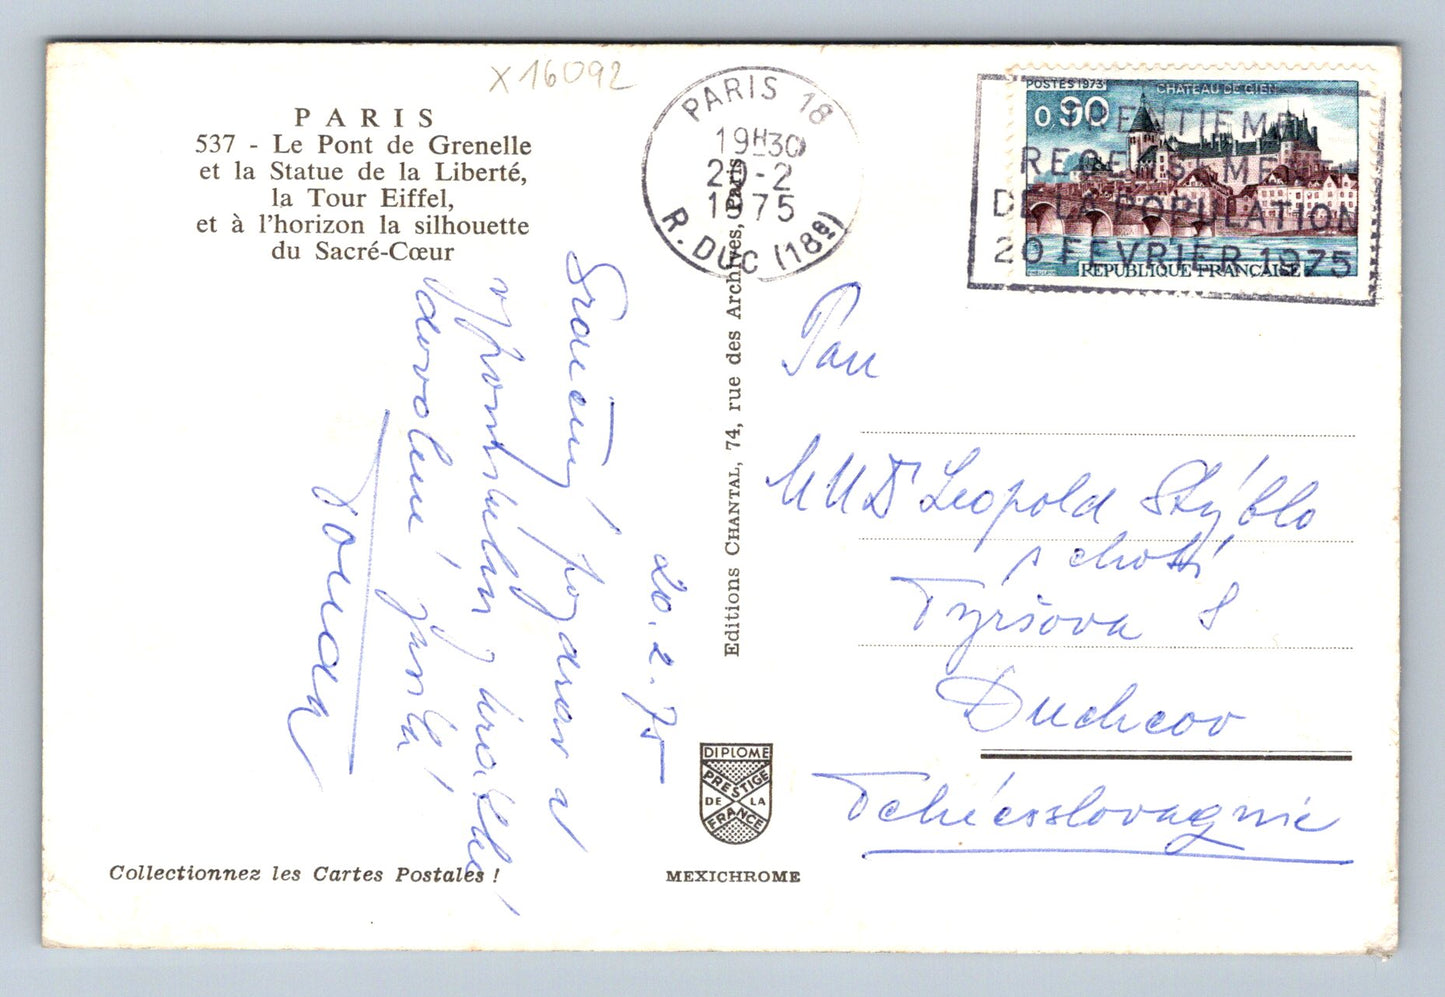 X16092
PARIS
537 - Le Pont de Grenelle
et la Statue de la Liberté,
la Tour Eiffel,
et à l'horizon la silhouette
du Sacré-Cœur
PARIS 18
19H30
20-2
1975
R. DUC (18e)
POSTES 1973
CHATEAU DE GIEN
0,90
REPUBLIQUE FRANÇAISE
TRENTIEME
RECENSEMENT
DE LA POPULATION
20 FEVRIER 1975
20.2.75
Srdečný pozdrav z
dovolené
Editions CHANTAL, 74, rue des Archives, Paris
Pan
MUDr Leopold Stýblo
s chotí
Tyršova 8
Duchcov
Tchécoslovaquie
DIPLOME
PRESTIGE
DE LA
FRANCE
Collectionnez les Cartes Postales !
MEXICHROME